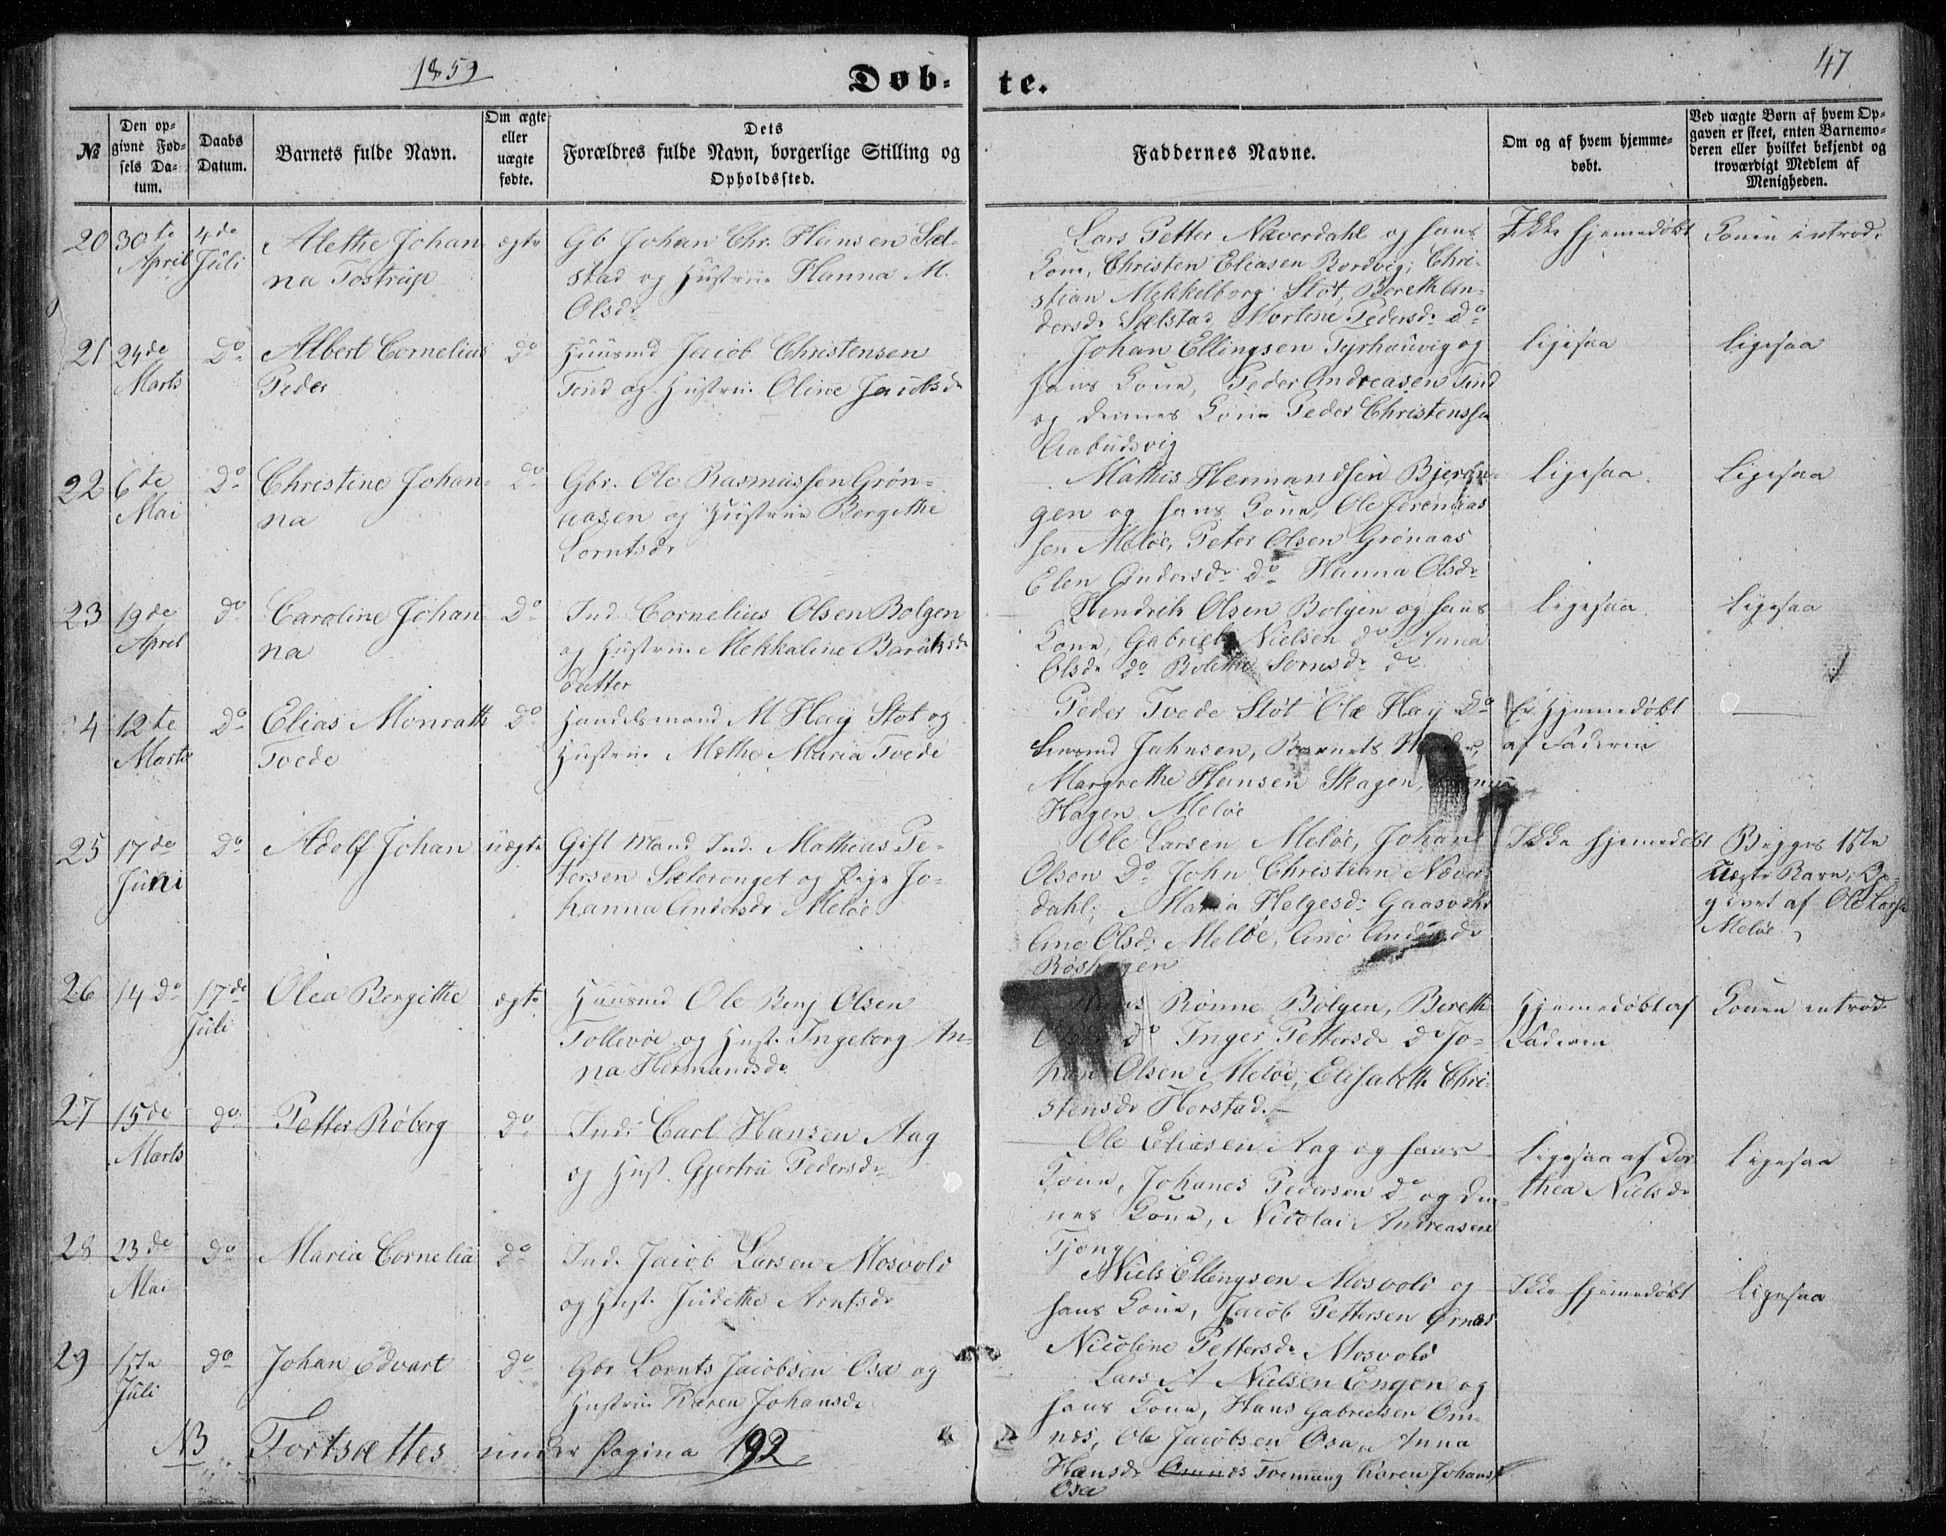 1859
Døb- te.
47
№
Den op-
givne Fød-
sels Da-
tum.
Daabs
Datum.
Barnets fulde Navn.
Om ægte
eller
uægte
fødte.
Dets
Forældres fulde Navn, borgerlige Stilling og
Opholdssted.
Faddernes Navne.
Om og af hvem hjemme-
døbt.
Ved uægte Børn af hvem Op-
gaven er skeet, enten Barnemo-
deren eller hvilket bekjendt og
troværdigt Medlem af
Menigheden.
20 30te April
4de Juli
Alethe Johan
na Tostrup
ægte
Gb Johan Chr. Hansen Sæl-
stad og Hustrue Hanna M.
Olsdr
Lars Petter Næverdahl og hans
Kone, Christen Eliasen Bordvig, Chri-
stian Mekkelborg Støt, Bereth An-
dersdr Sælstad, Mortine Pedersdr do
Ikke hjemedøbt
Konen introd.
21 24de Marts
Do
Albert Cornelius
Peder
do
Huusmd Jacob Christensen
Tend og Hustrue Oline Jacobsdr
Johan Ellingsen Tyrhaugvig og
hans Kone, Peder Andreasen Tind
og dennes Kone Peder Christensen
Aabudsvig
ligesaa
ligesaa
22 6te Mai
Do
Christine Johan-
na
do
Gbr. Ole Rasmussen Grøn-
aasen og Hustrue Bergithe
Lorntsdr
Mathis Hermandsen Bjerkn-
gen og hans Kone, Ole Jeremias
sen Meløe, Peter Olsen Grønaas
Elen Andersdr do Hanna Olsdr
ligesaa
ligesaa
23 19de April
do
Caroline Johan
na
Do
Ind Cornelius Olsen Bolgen
og Hustrue Mekkaline Baraksdr
datter
Hendrik Olsen Bolgen og hans
Kone, Gabriel Nielsen do Anna
Olsdr do Bolethe Sørnsdr do
ligesaa
ligesaa
4 12te Marts
Do
Elias Monrath
Tvede
Do
Handelsmand M Hay Støt og
Hustrue Methe Maria Tvede
Peder Tvede Støt Ole Hay do
Jahnsen, Barnets Moder,
Margrethe Hansen Skagen,
Hagen Meløe
Er Hjemmedøbt
af Faderen
25 17de Juni
do
Adolf Johan
uægte
Gift Mand Ind. Mathias Pe-
tersen Sæterenget og Pige Jo-
hanna Andersdr Meløe
Ole Larsen Meløe, Johan
Olsen Do John Christian Næver
dahl, Maria Helgesdr Gaasvær
Ane Olsdr Meløe, Ane Andersdr
Røshagen
Ikke hjemedøbt
Begges 1ste
Uægte Barn, Op-
givet af Ole Larsen
Meløe
26 14 do
17de Juli
Olea Bergithe
ægte
Huusmd Ole Benj Olsen
Tollevøe og Hust. Ingeborg An-
na Hermandsdr
Hans Rønne Bolgen, Bereth
Olsdr do Inger Pettersdr do Jo-
han Olsen Meløe, Elisabeth Chri-
stensdr Herstad.
Hjemedøbt af
Faderen
Konen introd
27 15de Marts
do
Petter Røberg
do
Ind: Carl Hansen Aag
og Hust Gjertru Pedersdr
Ole Eliasen Aag og hans
Kone, Johanes Pedersen do og den
nes Kone, Nicolai Andreasen
Tjong
ligesaa af Dor
thea Nielsdr
ligesaa
28 23de Mai
Do
Maria Cornelia
do
Ind. Jacob Larsen Mosvold
og Hust. Judithe Arntsdr
Niels Ellingsen Mosvold og
hans Kone, Jacob Pettersen Ørnæs
Nicoline Pettersdr Mosvold
Ikke hjemedøbt
ligesaa
29 1ste Juli
do
Johan Edvart
do
Gbr Lornts Jacobsen Osa og
Hustrue Karen Johansdr
Lars A Nielsen Engen og
hans Kone, Hans Gabrielsen Om-
nes, Ole Jacobsen Osa, Anna
Hansdr Tvernang Karen Johansdr
Osa
NB Fortsættes under Pagina 192